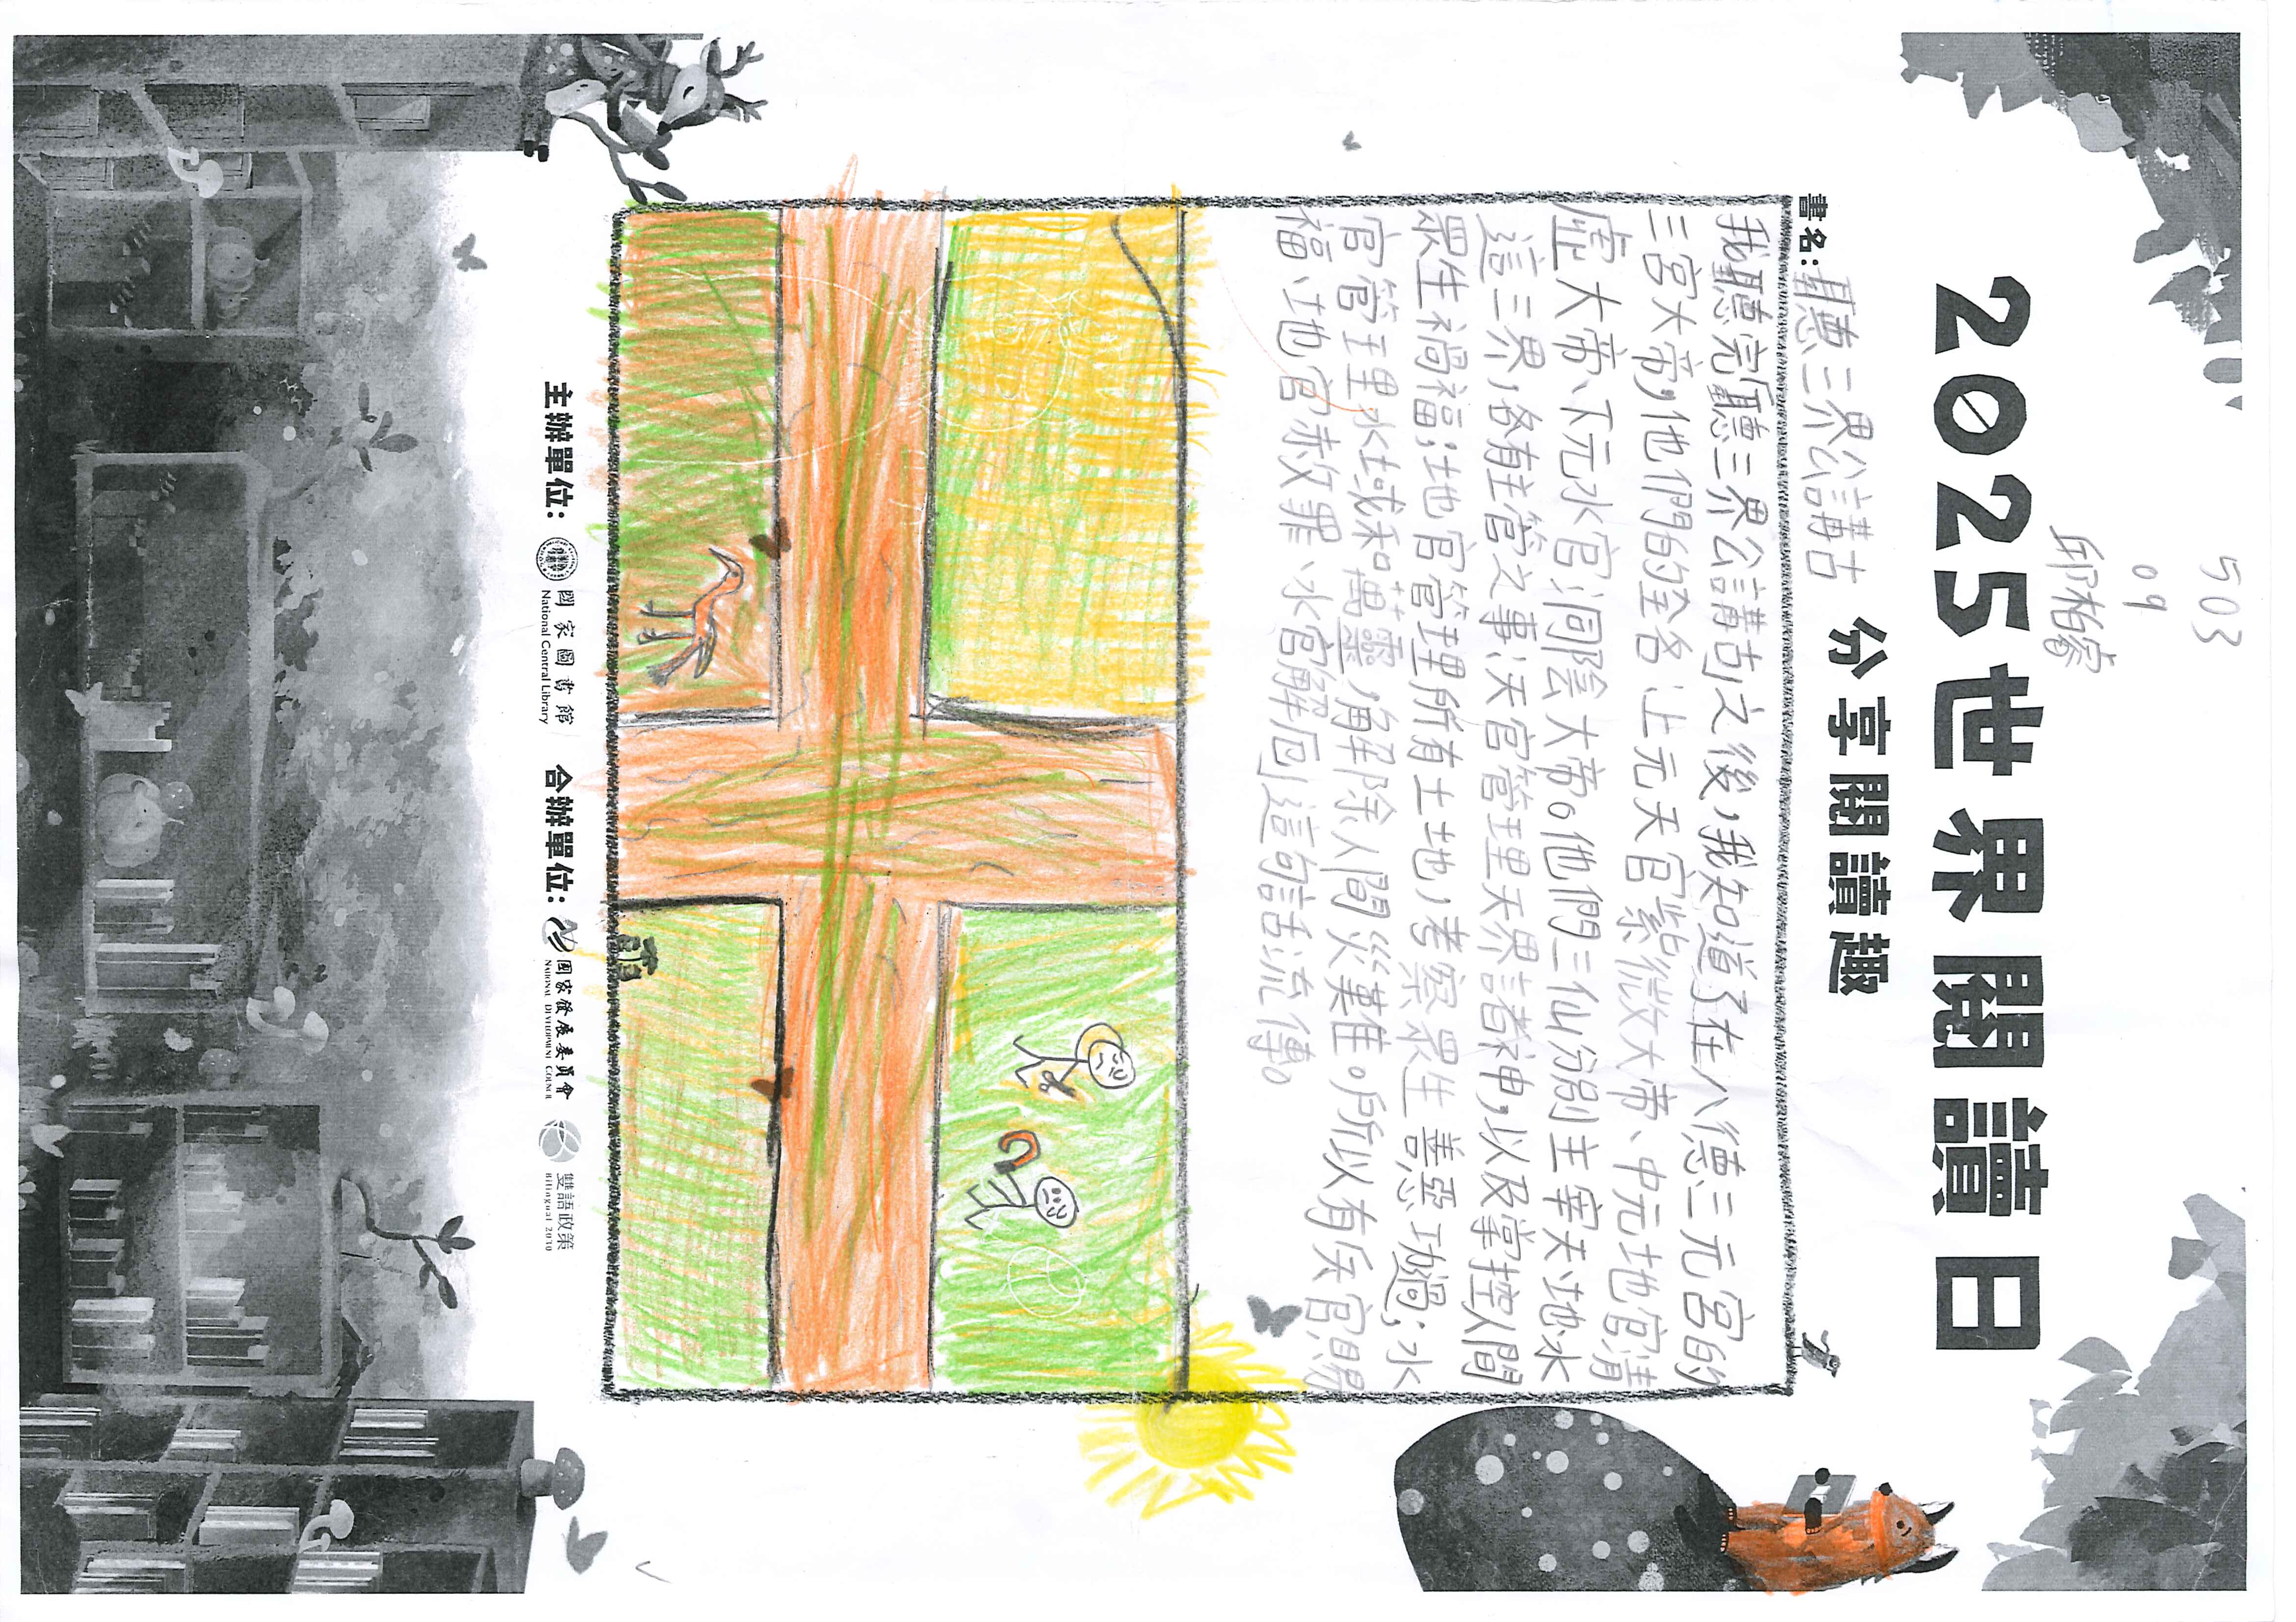 503
09
邱柏睿
2025世界閱讀日
分享閱讀趣
書名：聽三界公講古
我聽完聽三界公講古之後，我知道了在八德三元宮的
三官大帝，他們的全名 上元天官紫微大帝、中元地官清
虛大帝、下元水官洞陰大帝。他們三仙分別主宰天地水
這三界，各有主管之事：天官管理天界諸神，以及掌控人間
眾生禍福；地官管理所有土地，考察眾生善惡功過；水
官管理水域和萬靈，解除人間災難。所以有天官賜
福、地官赦罪、水官解厄這句話流傳。
主辦單位：
國家圖書館
National Central Library
合辦單位：
國家發展委員會
NATIONAL DEVELOPMENT COUNCIL
雙語政策
Bilingual 2030